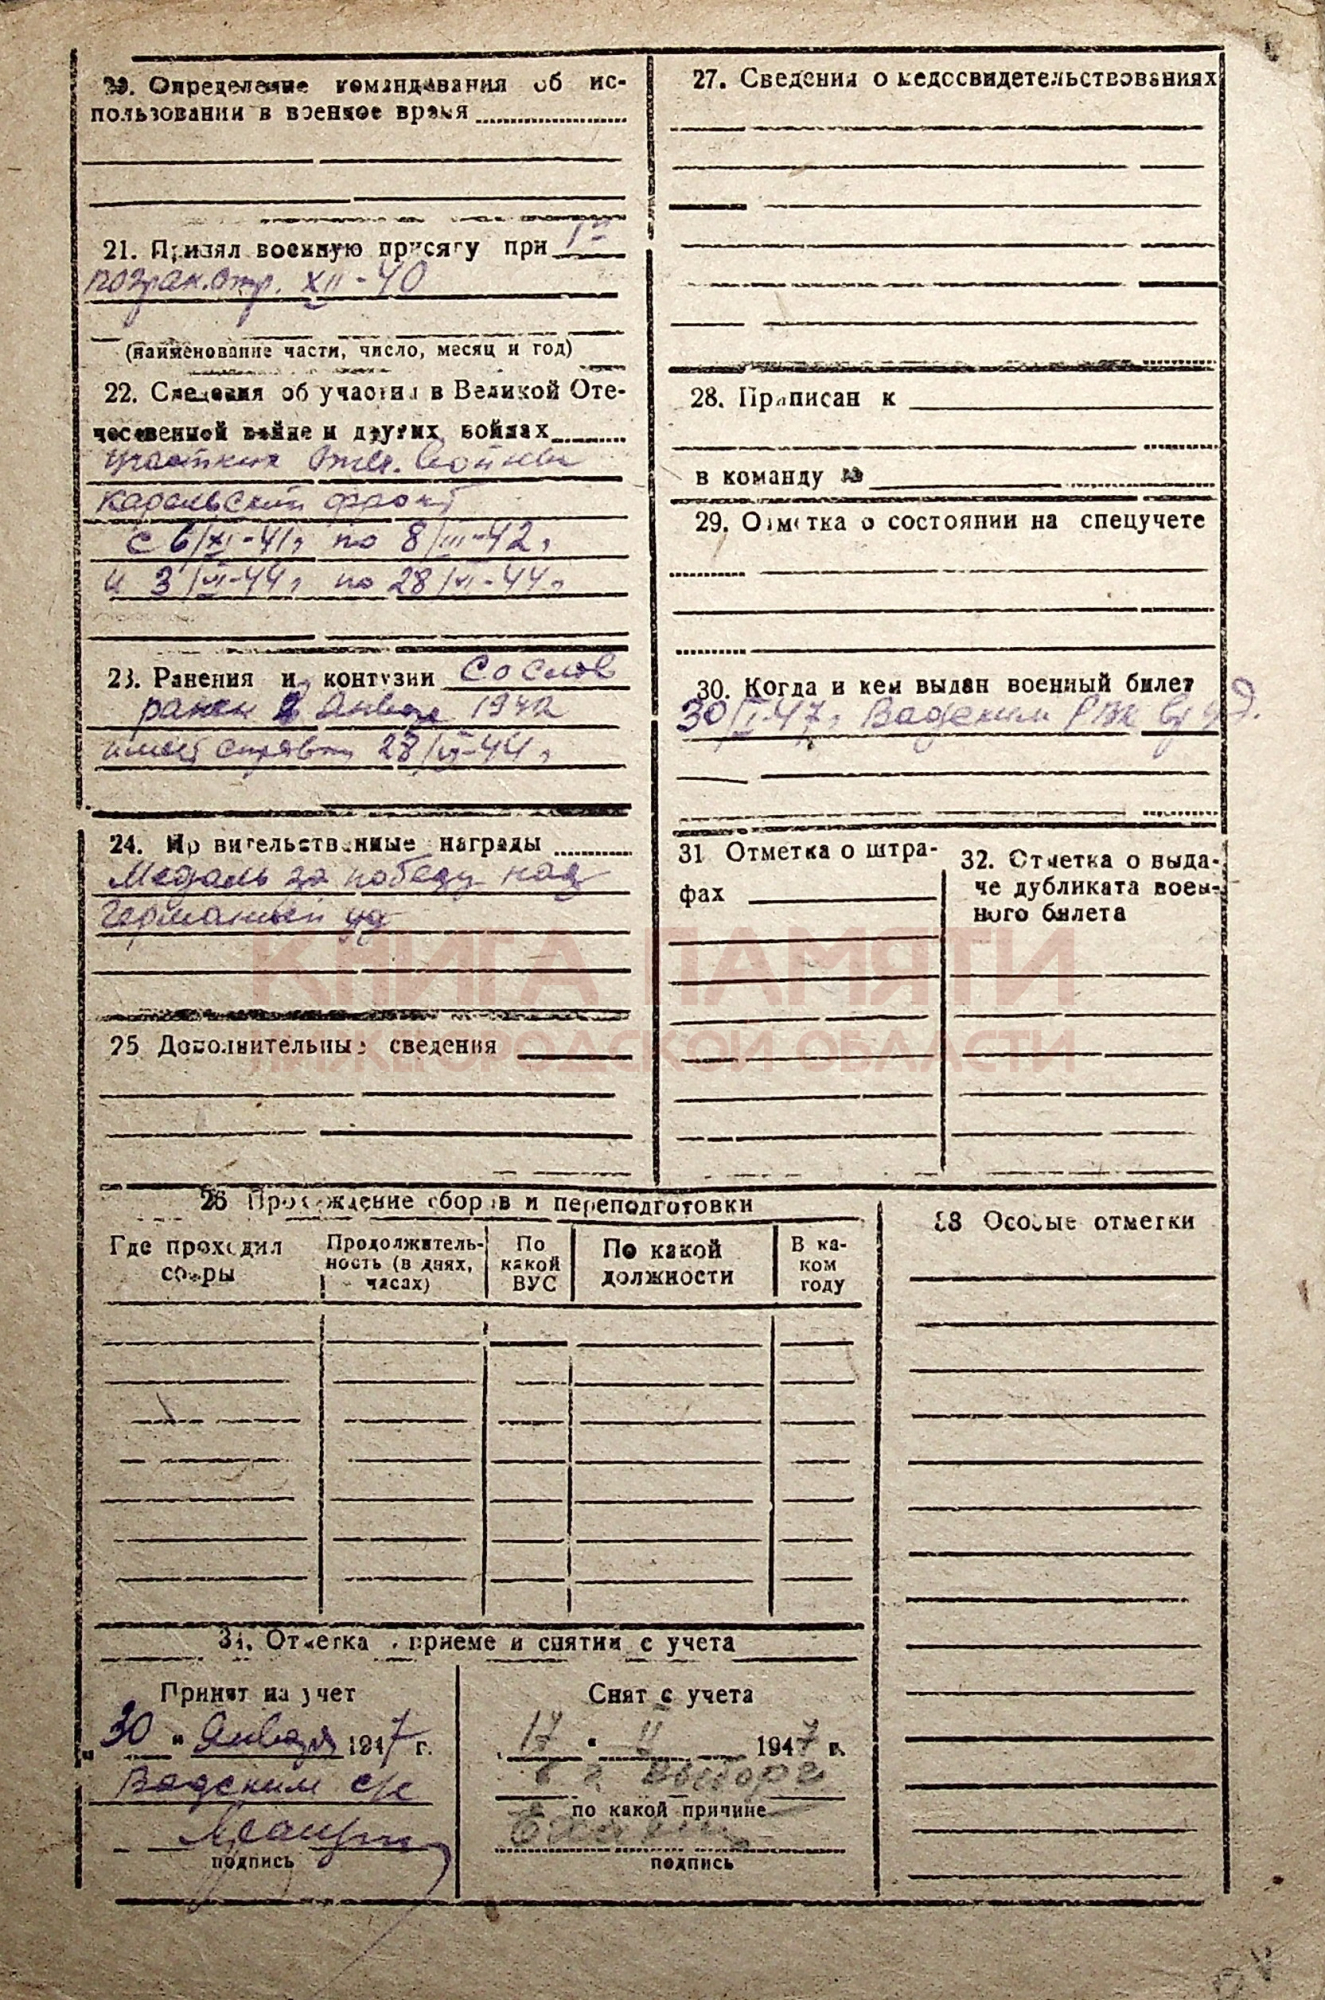 20. Определение командования об ис-
пользовании в военное время
21. Принял военную присягу при 17
погран.отр. XII-40
(наименование части, число, месяц и год)
22. Сведения об участии в Великой Оте-
чественной войне и других войнах
участник Оте. войны
карельский фронт
с 6/XI-41г по 8/III-42г
и 3/VI-44г по 28/VI-44г
23. Ранения и контузии Со слов
ранен 2 января 1942
имеет справку 28/VI-44г
24. Правительственные награды
Медаль за победу над
Германией уд
25 Дополнительные сведения
27. Сведения о медосвидетельствованиях
28. Приписан к
в команду №
29. Отметка о состоянии на спецучете
30. Когда и кем выдан военный билет
30/I-47г Вадским РВК
31 Отметка о штра-
фах
32. Отметка о выда-
че дубликата воен-
ного билета
КНИГА ПАМЯТИ
НИЖЕГОРОДСКОЙ ОБЛАСТИ
26 Прохождение сборов и переподготовки
Где проходил сборы
Продолжитель-
ность (в днях,
часах)
По
какой
ВУС
По какой
должности
В ка-
ком
году
33 Особые отметки
34. Отметка о приеме и снятии с учета
Принят на учет
"30" Января 1947 г.
Вадским с/с
подпись
Снят с учета
17 " II 1947 г.
в г Выборг
по какой причине
подпись